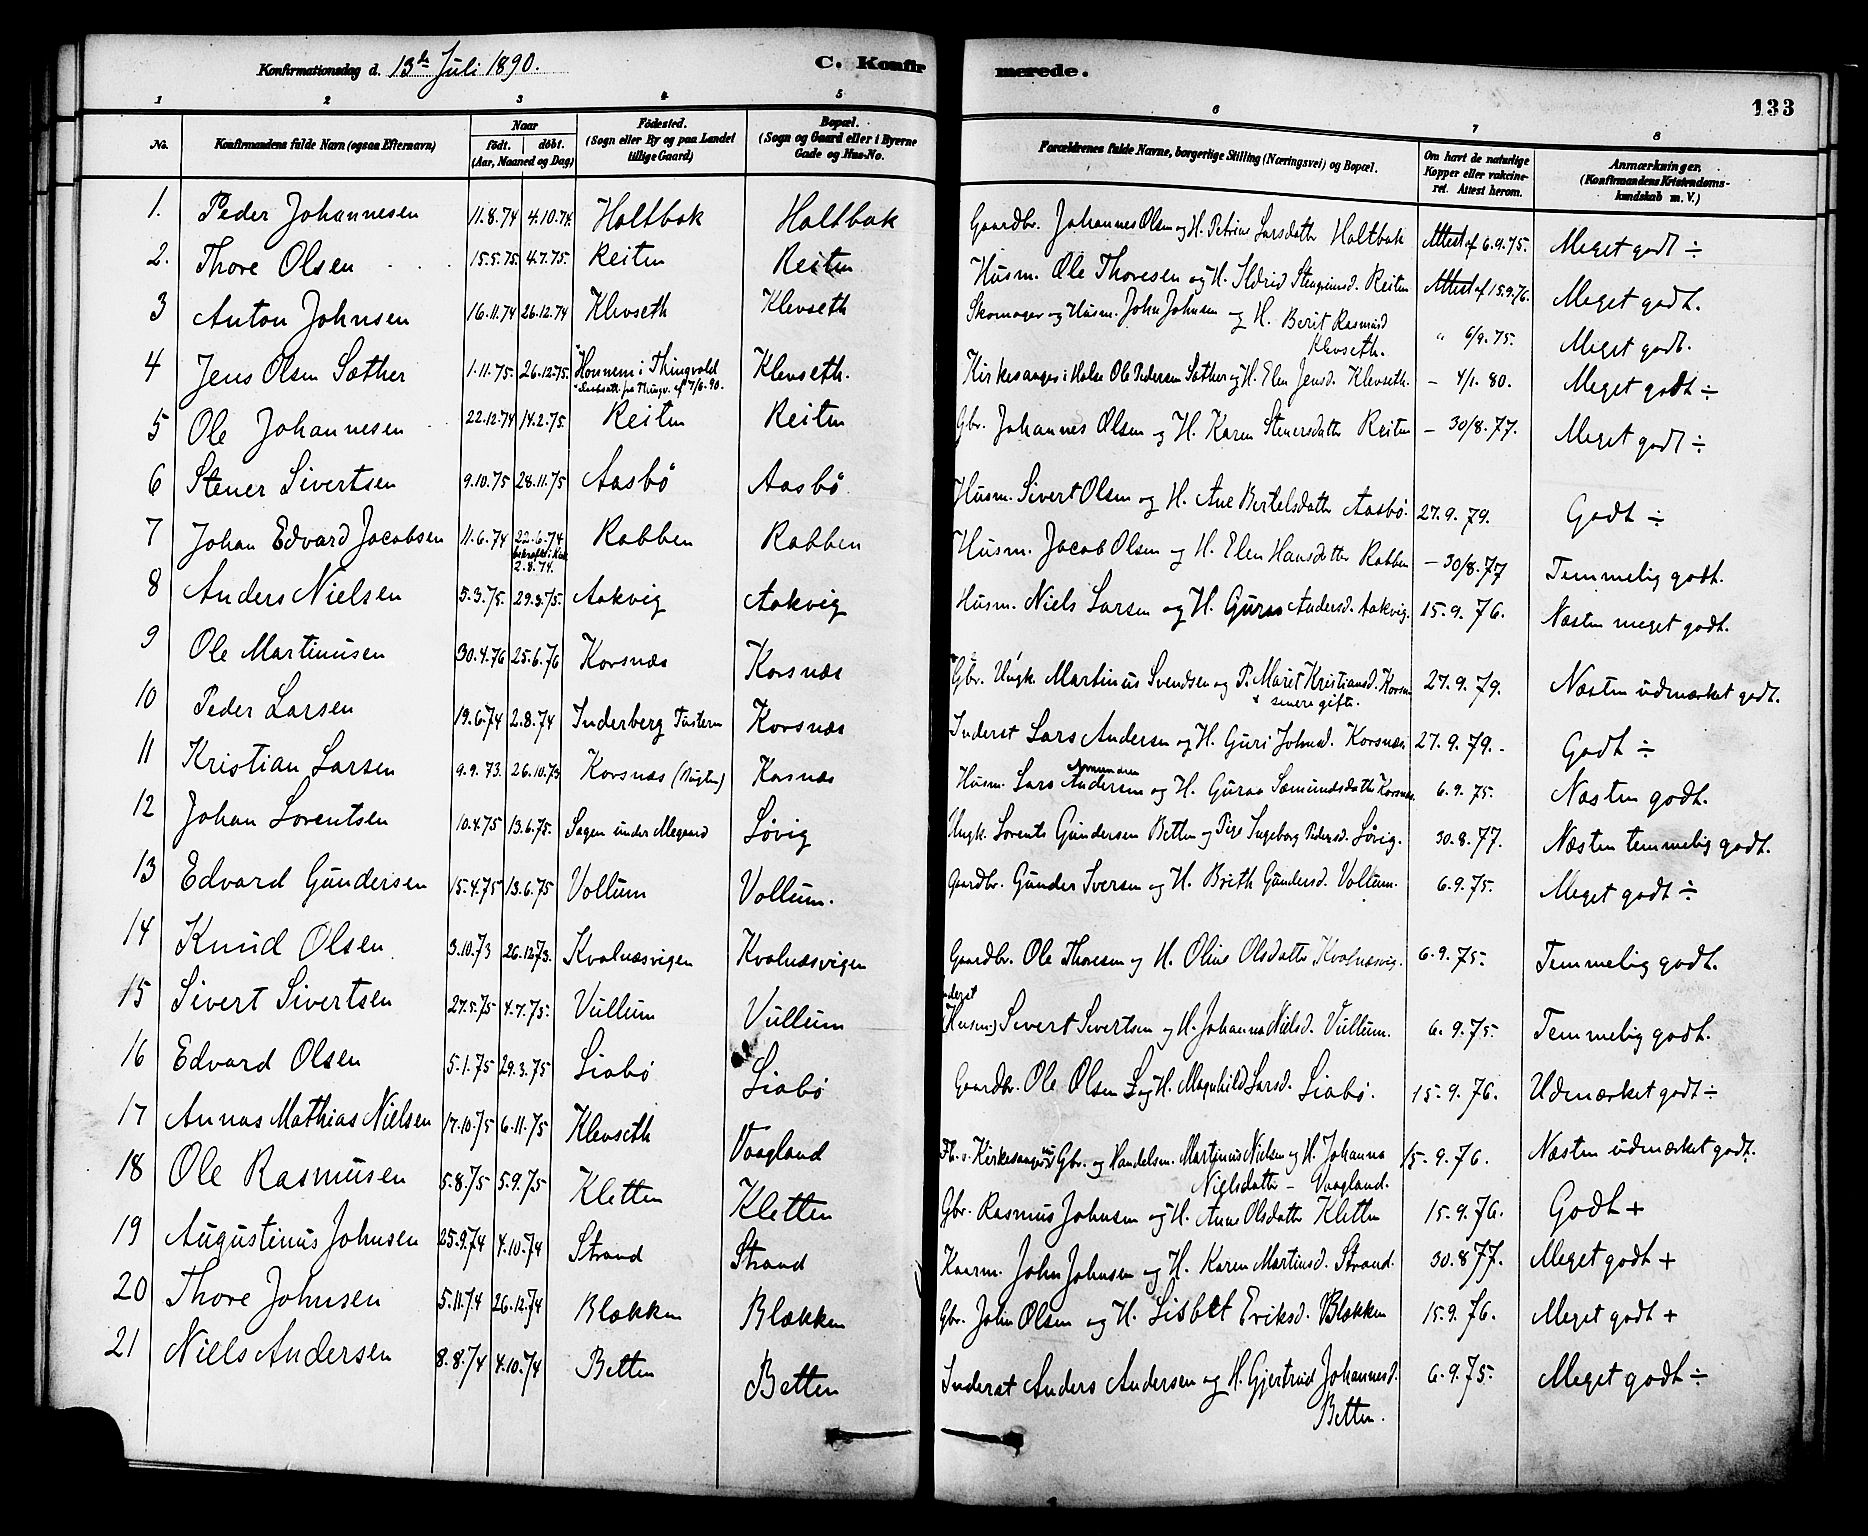 Konfirmationsdag d. 13de Juli 1890.
C. Konfirmerede.
133
1 2 3 4 5 6 7 8
No. | Konfirmandens fulde Navn (ogsaa Efternavn) | Naar født. døbt. (Aar, Maaned og Dag) | Fødested. (Sogn eller By og paa Landet tillige Gaard) | Bopæl. (Sogn og Gaard eller i Byerne Gade og Hus-No. | Forældrenes fulde Navne, borgerlige Stilling (Næringsvei) og Bopæl. | Om havt de naturlige Kopper eller vakcineret. Attest herom. | Anmærkninger. (Konfirmandens Kristendomskundskab m. V.)
1. Peder Johannesen 11.8.74 4.10.74. Holtbak Holtbak Gaardbr. Johannes Olsen og H. Petrine Larsdatter Holtbak Attest af 6.9.75. Meget godt ÷
2. Thore Olsen 15.5.75 4.7.75. Reiten Reiten Husm. Ole Thoresen og H. Ildrid Stengrimsd. Reiten Attest af 15.9.76. Meget godt.
3 Anton Johnsen 16.11.74 26.12.74 Klevseth Klevseth Skomager og Husm. John Johnsen og H. Berit Rasmusd
Klevseth. " 6/9.75. Meget godt.
4 Jens Olsen Sæther 1.11.75. 26.12.75. Honnem i Thingvold Klevseth. Kirkesanger i Halse Ole Pedersen Sæther og H. Elen Jensd. Klevseth. – 4/1. 80. Meget godt ÷
fra Thingv. af 7/6.90.
5 Ole Johannesen 22.12.74 14.2.75 Reiten Reiten Gbr. Johannes Olsen og H. Karen Stenersdatter Reiten – 30/8.77. Meget godt ÷
6 Stener Sivertsen 9.10.75 28.11.75 Aasbø Aasbø. Husm. Sivert Olsen og H. Ane Bertelsdatter Aasbø. 27.9.79. Godt ÷
7 Johan Edvard Jacobsen 11.6.74 22.6.74 Rabben Rabben Husm. Jacob Olsen og H. Elen Hansdatter Rabben – 30/8.77 Temmelig godt.
2.8.74.
8 Anders Nielsen 5.3.75. 29.3.75. Aakvig Aakvig Husm. Niels Larsen og H. Guras Andersd. Aakvig. 15.9.76. Næsten meget godt.
9 Ole Martinusen 30.4.76 25.6.76 Korsnæs Korsnæs Gbr. Ungk. Martinus Svendsen og P. Maret Kristiansd. Korsn 27.9.79. Næsten udmærket godt.
senere gifte.
10 Peder Larsen 19.6.74 2.8.74 Inderberg Tustern Korsnæs Inderst Lars Andersen og H. Guri Johnsd. Korsnæs 27.9.79. Godt ÷
11 Kristian Larsen 9.9.73. 26.10.73 Korsnæs Kosnæs Husm. Lars Andersen og H. Guraa Sæmundsdatter Korsnæs. 6.9.75. Næsten godt.
12 Johan Lorentsen 10.4.75 13.6.75. Sagen under Megaard Løvig Ungk. Lorents Gundersen Betten og Pige Ingeborg Pedersd. Løvig. 30.8.77. Næsten temmelig godt.
13 Edvard Gundersen 15.4.75 13.6.75 Vollum Vollum. Gaardbr. Gunder Iversen og H. Brith Gundersd. Vollum. 6.9.75. Meget godt ÷
14 Knud Olsen 3.10.73 26.12.73. Kvalnæsvigen Kvalnæsvigen Gaardbr. Ole Thoresen og H. Oline Olsdatter Kvalnæsvig. 6.9.75. Temmelig godt.
15 Sivert Sivertsen 27.5.75 4.7.75. Vullum Vullum (Husm.) Sivert Sivertsen og H. Johanna Nielsd. Vullum. 6.9.75. Temmelig godt.
16 Edvard Olsen 5.1.75 29.3.75 Liabø Liabø Gaardbr. Ole Olsen L og H. Magnhild Larsd. Liabø. 15.9.76. Udmærket godt ÷
17 Annas Mathias Nielsen 17.10.75 6.11.75 Klevseth Vaagland Fh. Kirkesanger nu Gbr. og Handelsm. Martinus Nielsen og H. Johanna 15.9.76. Næsten udmærket godt.
Nielsdatter – Vaagland.
18 Ole Rasmusen 5.8.75 5.9.75 Kletten Kletten Gbr. Rasmus Johnsen og H. Anne Olsdatter Kletten 15.9.76. Godt +
19 Augustinus Johnsen 25.9.74 4.10.74 Strand Strand Kaarm. John Johnsen og H. Karen Martinsd. Strand. 30.8.77. Meget godt +
20 Thore Johnsen 5.11.74 26.12.74 Blækken Blækken Gbr. John Olsen og H. Lisbet Eriksd. Blækken 15.9.76. Meget godt +
21 Niels Andersen 8.8.74 4.10.74 Betten Betten Inderst Anders Andersen og H. Gjertrud Johannesd. 6.9.75. Meget godt ÷
Betten.